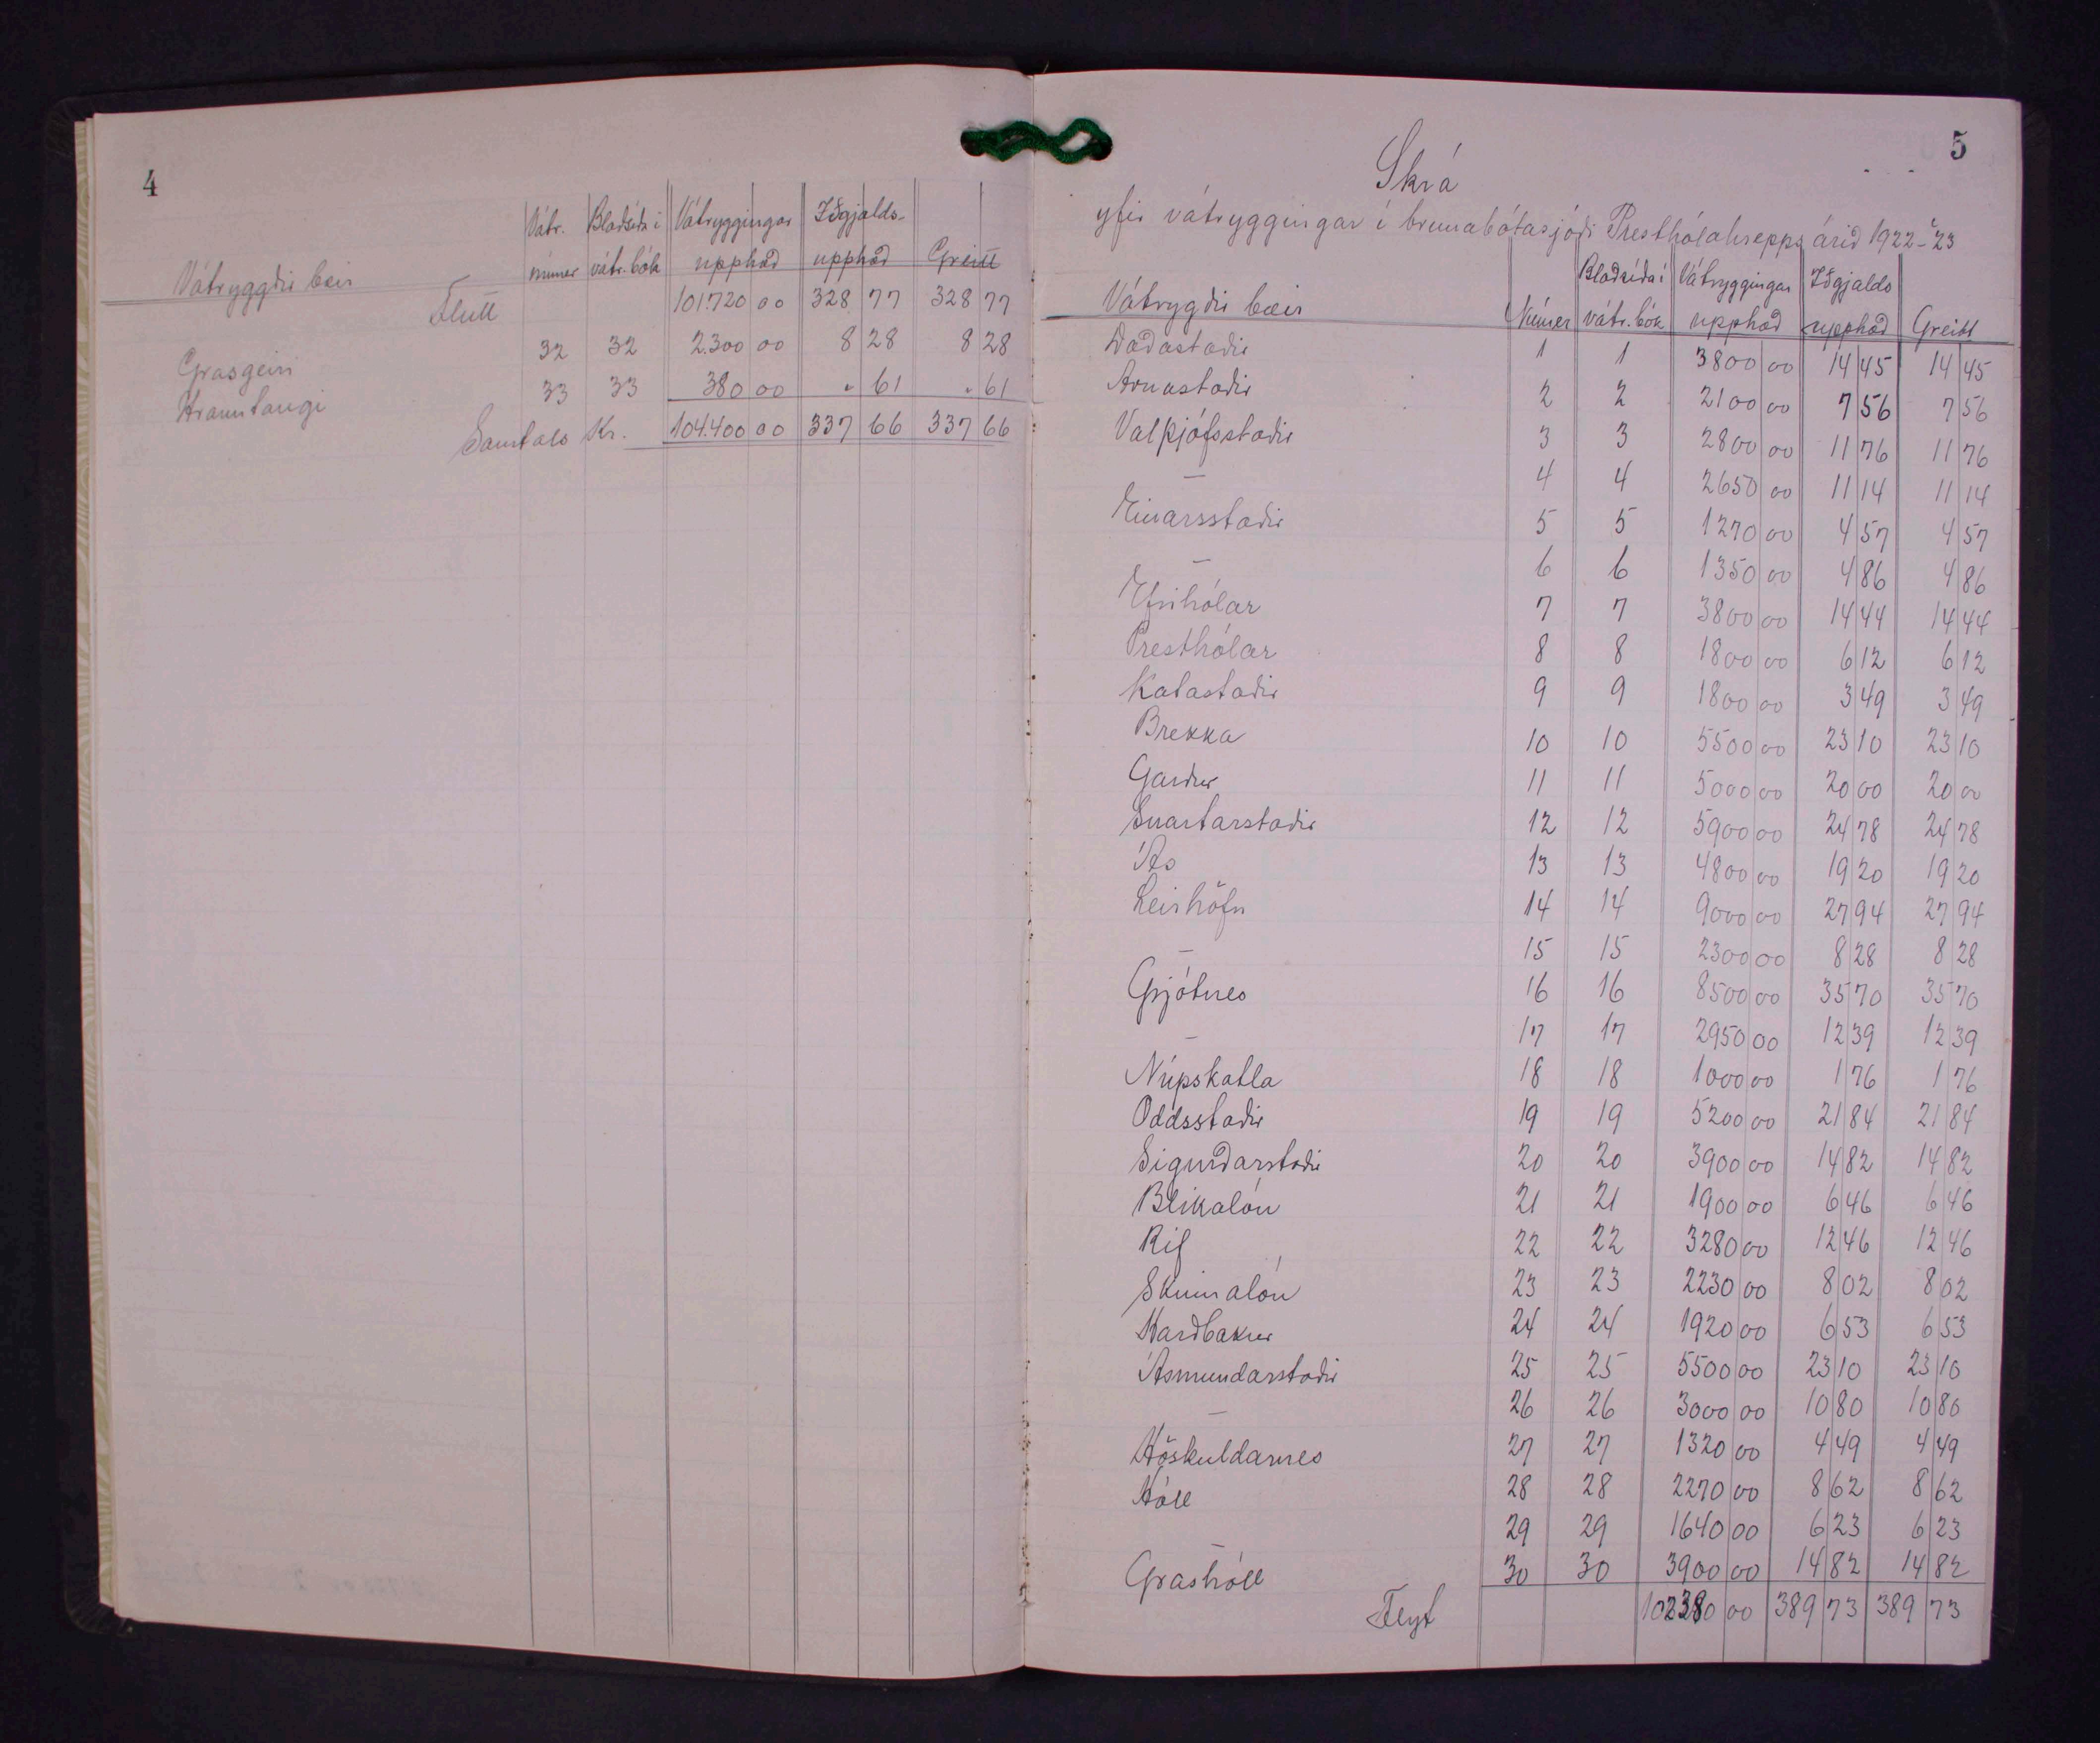 4
Vátr. Blaðsíða í Vátryggingar Iðgjalds-
Vátryggðir bæir númer vátr. bók upphæð upphæð Greitt
Flutt 101.720 00 328 77 328 77
Grasgeiri 32 32 2.300 00 8 28 8 28
Hrauntangi 33 33 380 00 " 61 " 61
Samtals Kr. 104.400 00 337 66 337 66
5
Skrá
yfir vátryggingar í brunabótasjóði Presthólahrepps árið 1922-"23
Blaðsíða í Vátryggingar Iðgjalds
Vátrygðir bæir Númer vátr. bók upphæð upphæð Greitt
Daðastaðir 1 1 3800 00 14 45 14 45
Arnastaðir 2 2 2100 00 7 56 7 56
Valþjófsstaðir 3 3 2800 00 11 76 11 76
— 4 4 2650 00 11 14 11 14
Einarsstaðir 5 5 1270 00 4 57 4 57
— 6 6 1350 00 4 86 4 86
Efrihólar 7 7 3800 00 14 44 14 44
Presthólar 8 8 1800 00 6 12 6 12
Katastaðir 9 9 1800 00 3 49 3 49
Brekka 10 10 5500 00 23 10 23 10
Garður 11 11 5000 00 20 00 20 00
Snartarstaðir 12 12 5900 00 24 78 24 78
Ás 13 13 4800 00 19 20 19 20
Leirhöfn 14 14 9000 00 27 94 27 94
— 15 15 2300 00 8 28 8 28
Grjótnes 16 16 8500 00 35 70 35 70
— 17 17 2950 00 12 39 12 39
Núpskatla 18 18 1000 00 1 76 1 76
Oddsstaðir 19 19 5200 00 21 84 21 84
Sigurðarstaðir 20 20 3900 00 14 82 14 82
Blikalón 21 21 1900 00 6 46 6 46
Rif 22 22 3280 00 12 46 12 46
Skinnalón 23 23 2230 00 8 02 8 02
Harðbakur 24 24 1920 00 6 53 6 53
Ásmundarstaðir 25 25 5500 00 23 10 23 10
— 26 26 3000 00 10 80 10 80
Höskuldarnes 27 27 1320 00 4 49 4 49
Hóll 28 28 2270 00 8 62 8 62
— 29 29 1640 00 6 23 6 23
Grashóll 30 30 3900 00 14 82 14 82
Flyt 102380 00 389 73 389 73